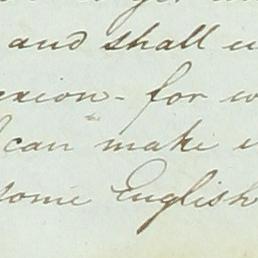 and shall
nion - for
can make
some English